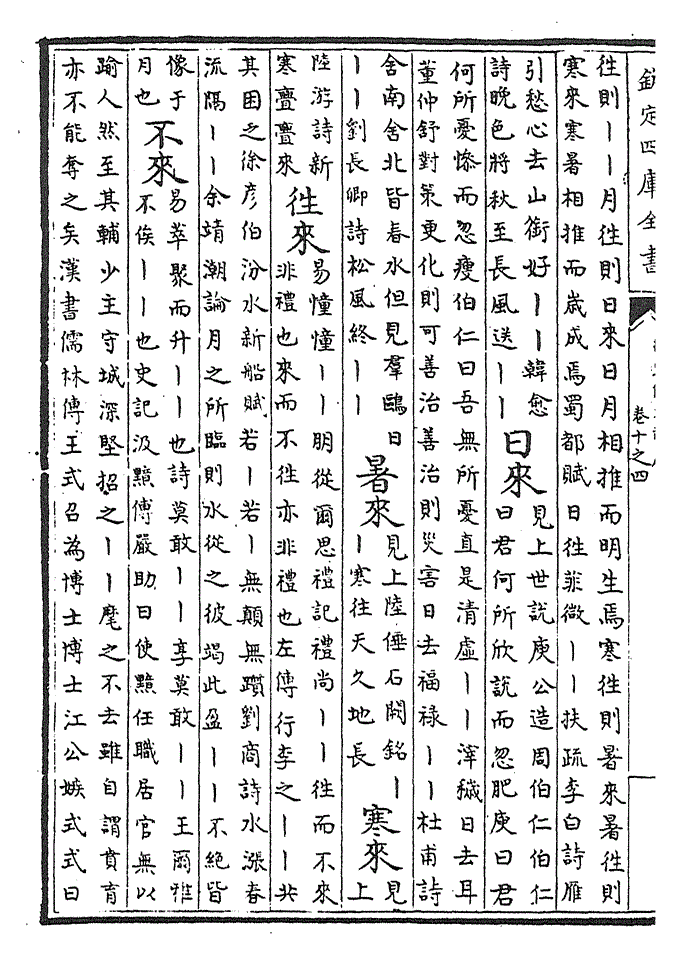 欽定四庫全書
卷十之四
徃則丨丨月徃則日來日月相推而明生焉寒徃則暑來暑徃則
寒來寒暑相推而嵗成焉蜀都賦日徃菲微丨丨扶疏李白詩雁
引愁心去山銜好丨丨韓愈
詩晚色將秋至長風送丨丨
日來
見上世説庾公造周伯仁伯仁
曰君何所欣説而忽肥庾曰君
何所憂慘而忽瘦伯仁曰吾無所憂直是清虛丨丨滓穢日去耳
董仲舒對策更化則可善治善治則災害日去福祿丨丨杜甫詩
舍南舍北皆春水但見羣鷗日
丨丨劉長卿詩松風終丨丨
暑來
見上陸倕石闕銘丨
丨寒往天久地長
寒來
見
上
陸游詩新
寒亹亹來
徃來
易憧憧丨丨朋從爾思禮記禮尚丨丨徃而不來
非禮也來而不徃亦非禮也左傳行李之丨丨共
其困乏徐彦伯汾水新船賦若丨若丨無顛無躓劉商詩水漲春
流隔丨丨余靖潮論月之所臨則水從之彼竭此盈丨丨不絕皆
像于
月也
不來
易萃聚而升丨丨也詩莫敢丨丨享莫敢丨丨王爾雅
不俟丨丨也史記汲黯傳嚴助曰使黯任職居官無以
踰人然至其輔少主守城深堅招之丨丨麾之不去雖自謂賁育
亦不能奪之矣漢書儒林傳王式召為博士博士江公嫉式式曰